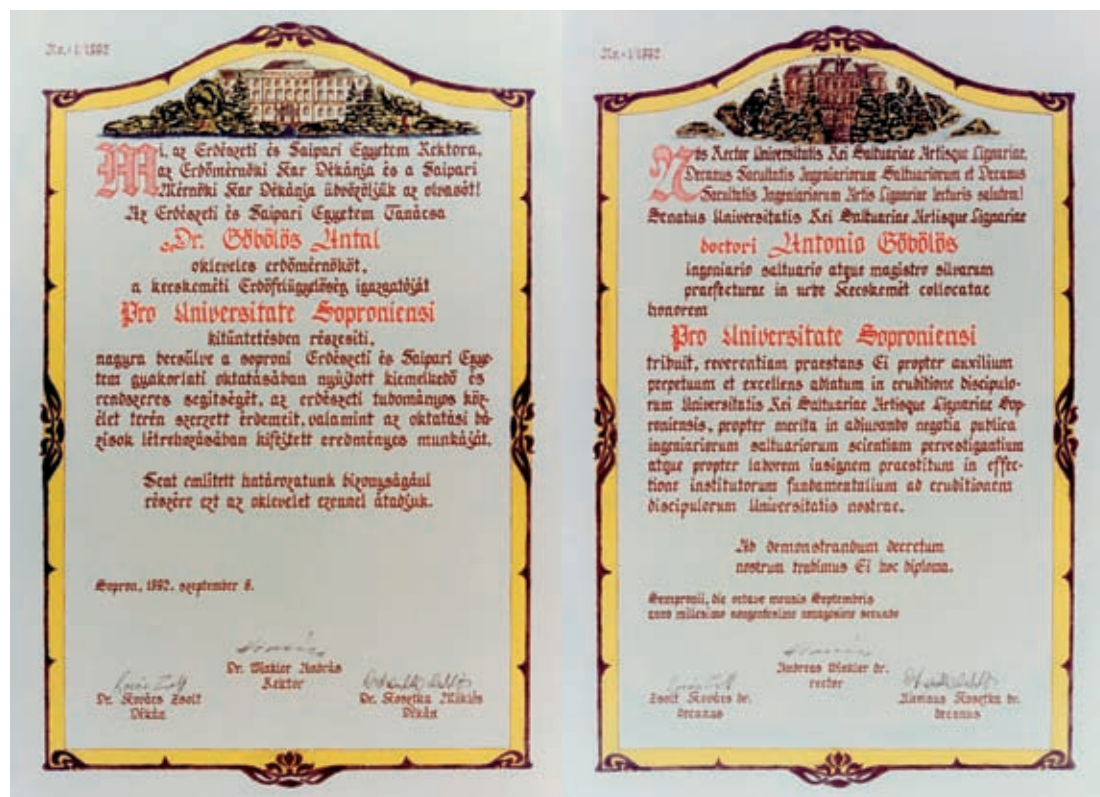 Nr.: 1/1992
Mi, az Erdészeti és Faipari Egyetem Rektora,
az Erdőmérnöki Kar Dékánja és a Faipari
Mérnöki Kar Dékánja üdvözöljük az olvasót!
Az Erdészeti és Faipari Egyetem Tanácsa
Dr. Göbölös Antal
okleveles erdőmérnököt,
a kecskeméti Erdőfelügyelőség igazgatóját
Pro Universitate Soproniensi
kitüntetésben részesíti,
nagyra becsülve a soproni Erdészeti és Faipari Egye-
tem gyakorlati oktatásában nyújtott kiemelkedő és
rendszeres segítségét, az erdészeti tudományos köz-
élet terén szerzett érdemeit, valamint az oktatási bá-
zisok létrehozásában kifejtett eredményes munkáját.
Fent említett határozatunk bizonyságául
részére ezt az oklevelet ezennel átadjuk.
Sopron, 1992. szeptember 8.
Dr. Winkler András
Rektor
Dr. Kovács Zsolt
Dékán
Dr. Kosztka Miklós
Dékán
Nr.: 1/1992
Nos Rector Universitatis Rei Saltuariae Artisque Lignariae,
Decanus Facultatis Ingeniariorum Saltuariorum et Decanus
Facultatis Ingeniariorum Artis Lignariae lecturis salutem!
Senatus Universitatis Rei Saltuariae Artisque Lignariae
doctori Antonio Göbölös
ingeniario saltuario atque magistro silvarum
praefecturae in urbe Kecskemét collocatae
honorem
Pro Universitate Soproniensi
tribuit, reverentiam praestans Ei propter auxilium
perpetuum et excellens ablatum in eruditione discipulo-
rum Universitatis Rei Saltuariae Artisque Lignariae Sop-
roniensis, propter merita in adiuvando negotia publica
ingeniariorum saltuariorum scientiam pervestigantium
atque propter laborem insignem praestitum in effec-
tione institutorum fundamentalium ad eruditionem
discipulorum Universitatis nostrae.
Ad demonstrandum decretum
nostrum tradimus Ei hoc diploma.
Sempronii, die octavo mensis Septembris
anno millesimo nongentesimo nonagesimo secundo
Andreas Winkler dr.
rector
Zsolt Kovács dr.
decanus
Kosztka dr.
decanus